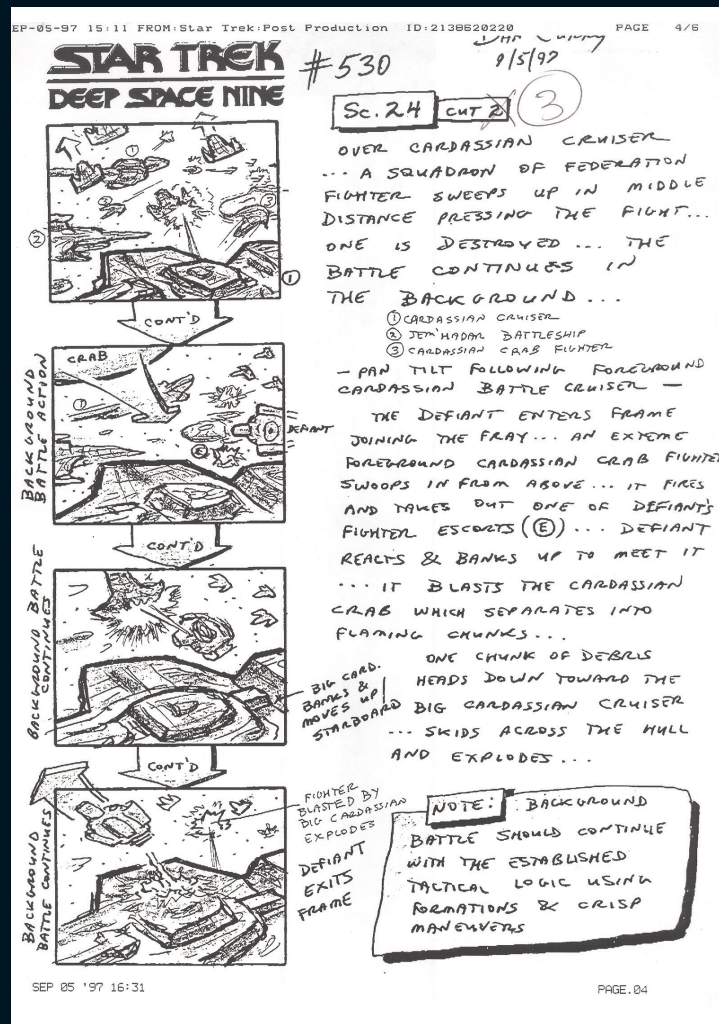 EP-05-97 15:11 FROM:Star Trek:Post Production ID:2138620220 PAGE 4/6
STAR TREK
DEEP SPACE NINE
#530
DAN CURRY
9/5/97
Sc. 24 CUT 2 3
OVER CARDASSIAN CRUISER
... A SQUADRON OF FEDERATION
FIGHTER SWEEPS UP IN MIDDLE
DISTANCE PRESSING THE FIGHT...
ONE IS DESTROYED ... THE
BATTLE CONTINUES IN
THE BACKGROUND...
① CARDASSIAN CRUISER
② JEM'HADAR BATTLESHIP
③ CARDASSIAN CRAB FIGHTER
— PAN TILT FOLLOWING FOREGROUND
CARDASSIAN BATTLE CRUISER —
THE DEFIANT ENTERS FRAME
JOINING THE FRAY... AN EXTEME
FOREGROUND CARDASSIAN CRAB FIGHTER
SWOOPS IN FROM ABOVE... IT FIRES
AND TAKES OUT ONE OF DEFIANT'S
FIGHTER ESCORTS (Ⓔ) ... DEFIANT
REACTS & BANKS UP TO MEET IT
... IT BLASTS THE CARDASSIAN
CRAB WHICH SEPARATES INTO
FLAMING CHUNKS...
ONE CHUNK OF DEBRIS
HEADS DOWN TOWARD THE
BIG CARDASSIAN CRUISER
... SKIDS ACROSS THE HULL
AND EXPLODES...
NOTE: BACKGROUND
BATTLE SHOULD CONTINUE
WITH THE ESTABLISHED
TACTICAL LOGIC USING
FORMATIONS & CRISP
MANEUVERS
①
③
②
①
CONT'D
BACKGROUND
BATTLE ACTION
CRAB
①
DEFIANT
Ⓔ
CONT'D
BACKGROUND BATTLE
CONTINUES
BIG CARD.
BANKS &
MOVES UP/
STARBOARD
CONT'D
BACKGROUND
BATTLE CONTINUES
FIGHTER
BLASTED BY
BIG CARDASSIAN
EXPLODES
DEFIANT
EXITS
FRAME
SEP 05 '97 16:31 PAGE.04